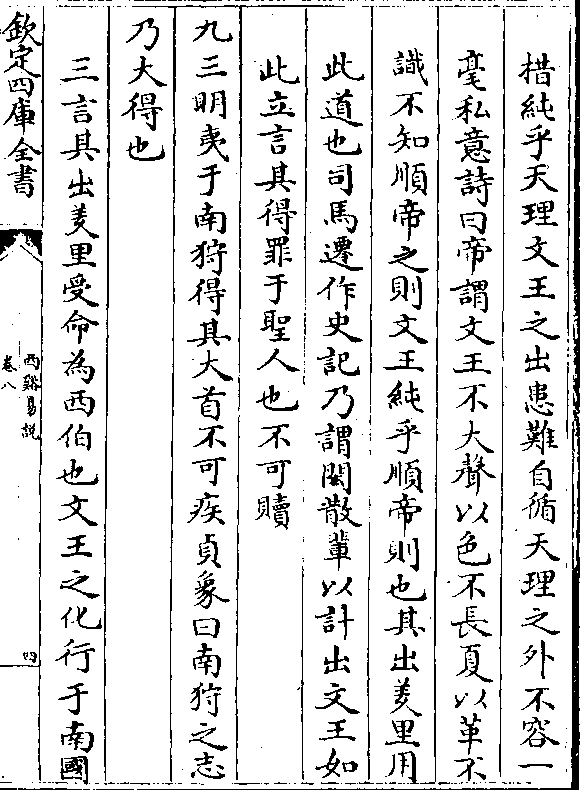 措純乎天理文王之出患難自循天理之外不容一
毫私意詩曰帝謂文王不大聲以色不長夏以革不
識不知順帝之則文王純乎順帝則也其出羑里用
此道也司馬遷作史記乃謂閎散輩以計出文王如
此立言其得罪于聖人也不可贖
九三明夷于南狩得其大首不可疾貞象曰南狩之志
乃大得也
三言其出羑里受命為西伯也文王之化行于南國
欽定四庫全書
西谿易說
卷八
四